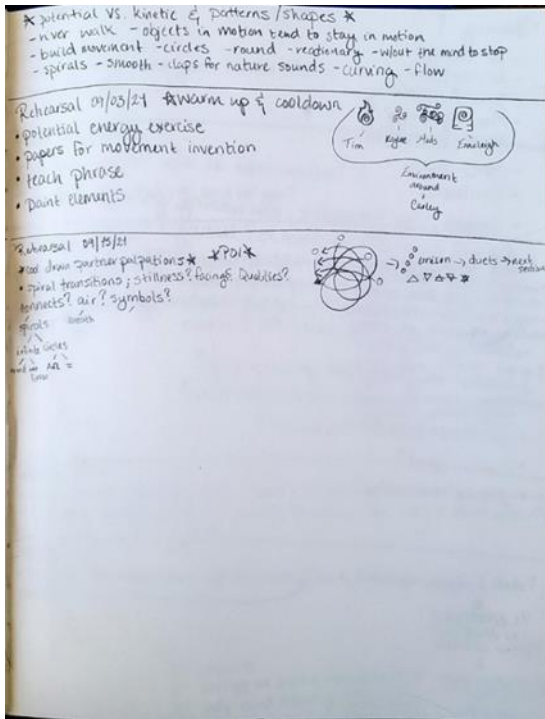 * potential vs. kinetic & patterns/shapes *
- river walk - objects in motion tend to stay in motion
- build movement - circles - round - reationary - w/out the mind to stop
- spirals - smooth - claps for nature sounds - curving - flow
Rehearsal 09/03/21 * warm up & cooldown
• potential energy exercise
• papers for movement invention
• teach phrase
• paint elements
Tim Kylie Emileigh
Environment
around
Carley
Rehearsal 09/15/21
* cool down partner palpations * * POI *
• spiral transitions ; stillness? facings? Qualities?
connects? air? symbols?
→ unison → duets → next
section
spirals
infinite circles